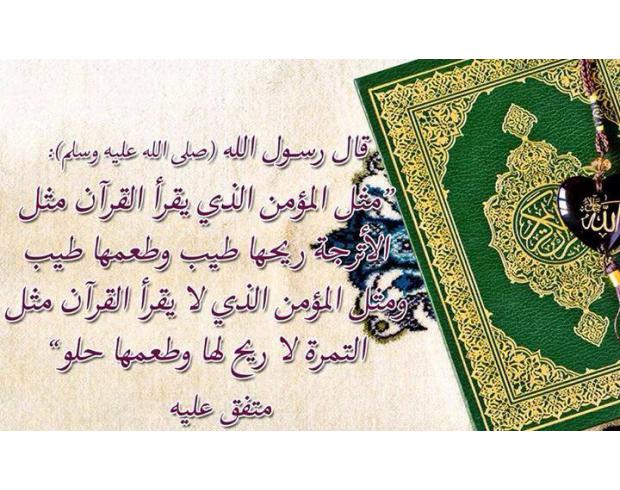 قال رسول الله (صلى الله عليه وسلم):
”مثل المؤمن الذي يقرأ القرآن مثل
الأترجة ريحها طيب وطعمها طيب
ومثل المؤمن الذي لا يقرأ القرآن مثل
التمرة لا ريح لها وطعمها حلو“
متفق عليه
القرآن الكريم
الله